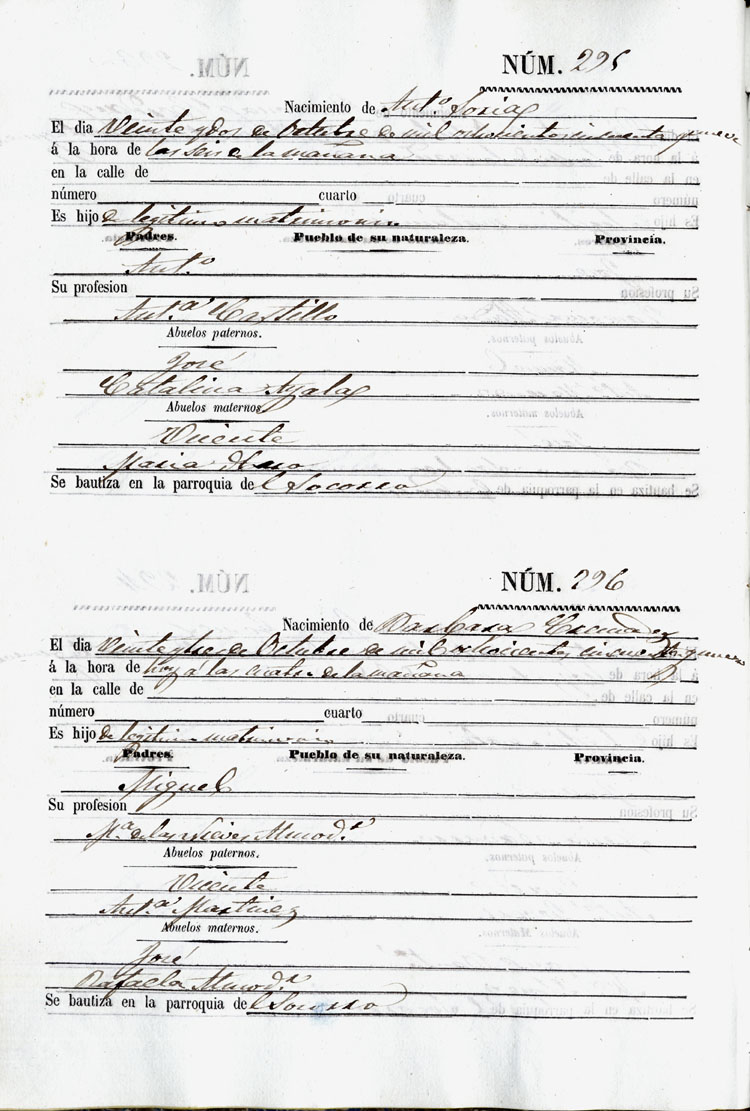 NÚM. 295
Nacimiento de Ant.º Soria
El dia Veinte y dos de Octubre de mil ochocientos cincuenta y nueve
á la hora de las seis de la mañana
en la calle de
número cuarto
Es hijo de legitimo matrimonio
Padres. Pueblo de su naturaleza. Provincia.
Ant.º
Su profesion
Ant.ª Castillo
Abuelos paternos.
José
Catalina Ayala
Abuelos maternos.
Vicente
Maria
Se bautiza en la parroquia del Socorro
NÚM. 296
Nacimiento de Barbara
El dia Veinte y tres de Octubre de mil ochocientos cincuenta y nueve
á la hora de hoy á las cuatro de la mañana
en la calle de
número cuarto
Es hijo de legitimo matrimonio
Padres. Pueblo de su naturaleza. Provincia.
Miguel
Su profesion
M.ª de las Nieves
Abuelos paternos.
Vicente
Ant.ª Martinez
Abuelos maternos.
José
Rafaela
Se bautiza en la parroquia del Socorro